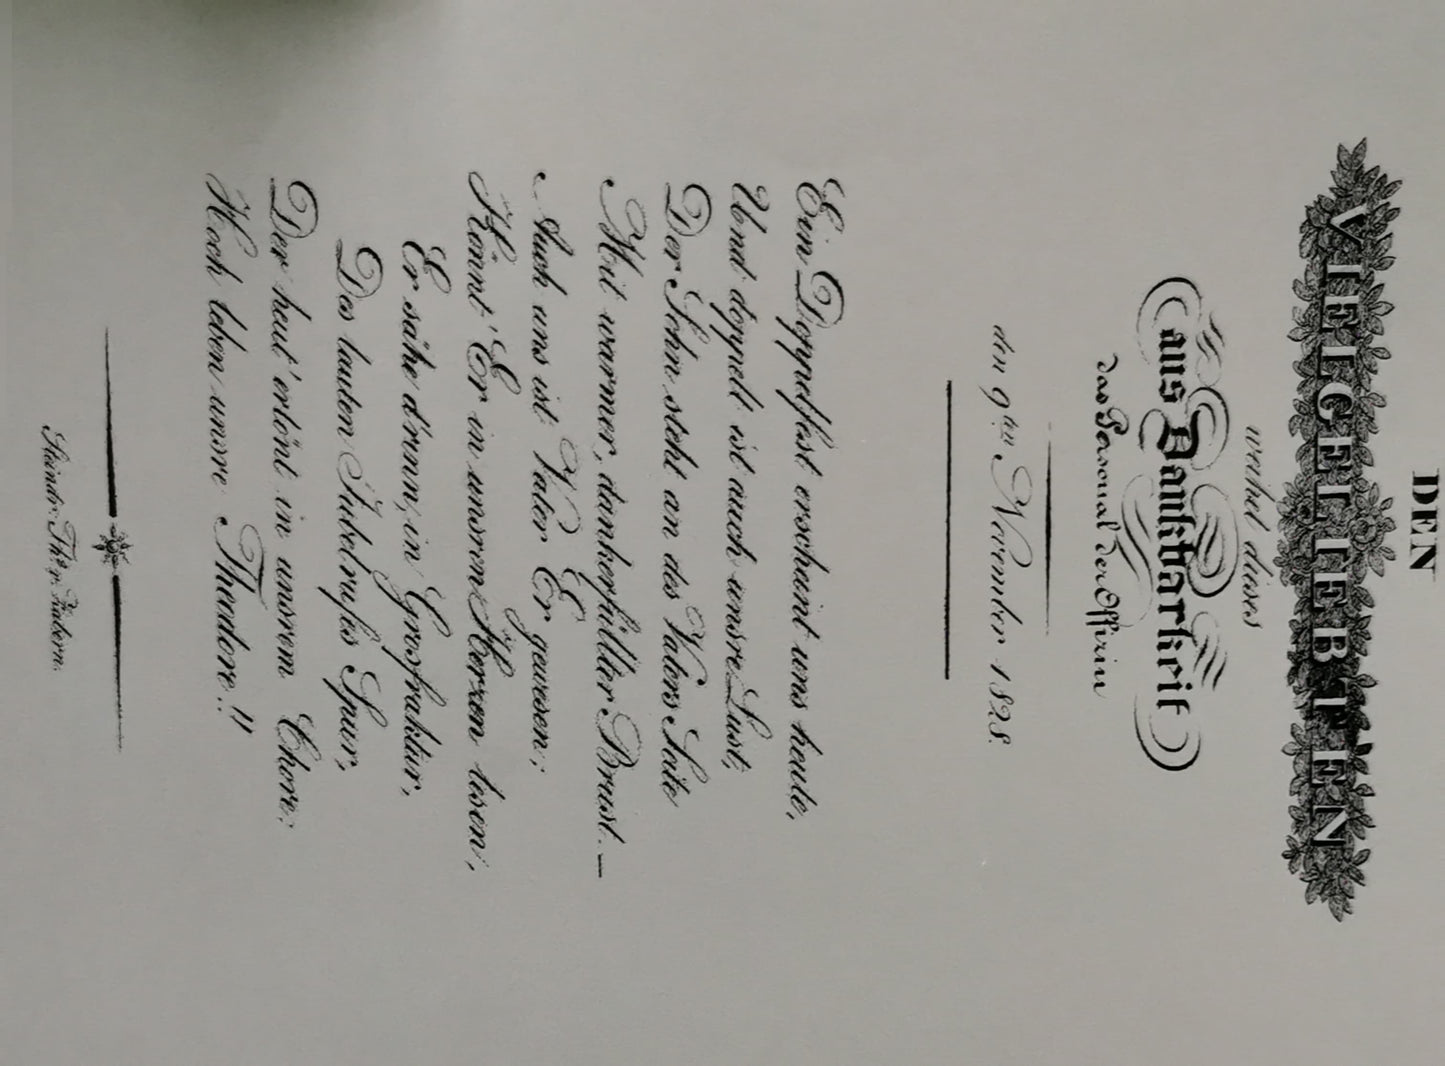 DEN
VIELGELIEBTEN
weihet dieses
aus Dankbarkeit
das Personal der Offizin
den 9ten November 1828.
Ein Doppelfest erscheint uns heute,
Und doppelt ist auch unsre Lust;
Der Sohn steht an des Vaters Seite
Mit warmer, dankerfüllter Brust. —
Auch uns ist Vater Er gewesen;
Könnt' Er in unsren Herzen lesen,
Er sähe drinn, in Grosfraktur,
Des lauten Jubelrufes Spur,
Der heut' ertönt in unsrem Chore:
Hoch leben unsre Theodore!!
Steindr. Th. v. Zabern.